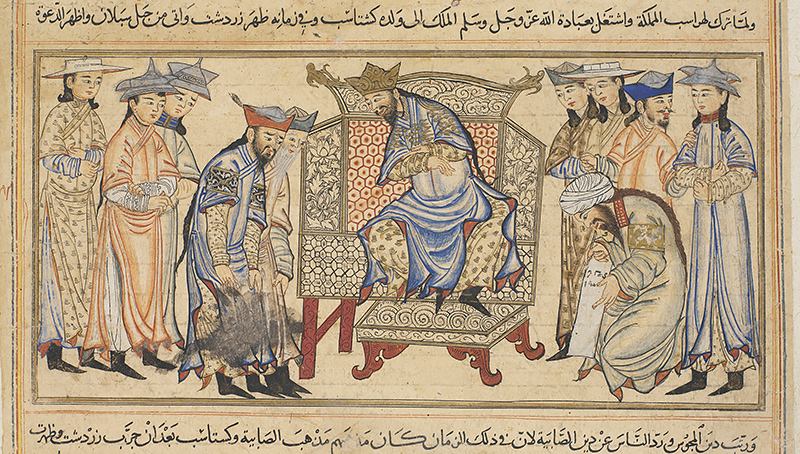 ولما ترك لهراسب المملكة واشتغل بعبادة الله عز وجل وسلم الملك الى ولده كشتاسب وفي زمانه ظهر زردشت واتى من جبل سبلان واظهر الدعوة
ورتب دين المجوس ورد الناس عن دين الصابية لان في ذلك الزمان كان مذهبهم مذهب الصابية وكستاسب بعد ان جرب زردشت وظهرت